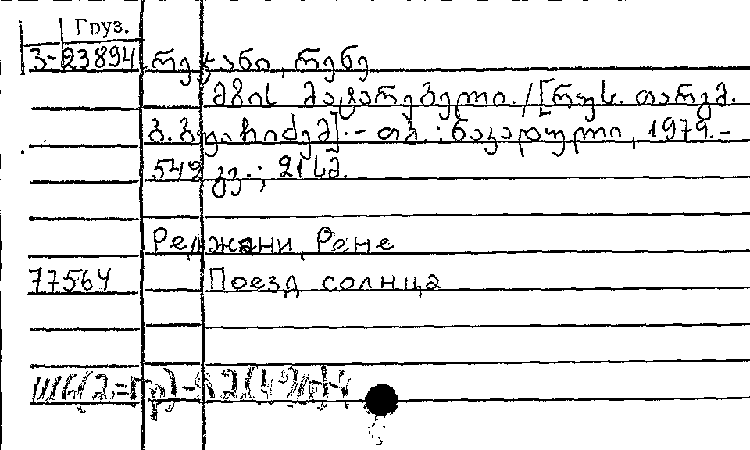 Груз.
3-23894 რეჯანი, რენე
მზის მატარებელი. /[რუს. თარგმ.
გ. გეგეჩიძემ]. - თბ. : ნაკადული, 1979. -
542 გვ. ; 21 სმ.
Реджани, Рене
77564 Поезд солнца